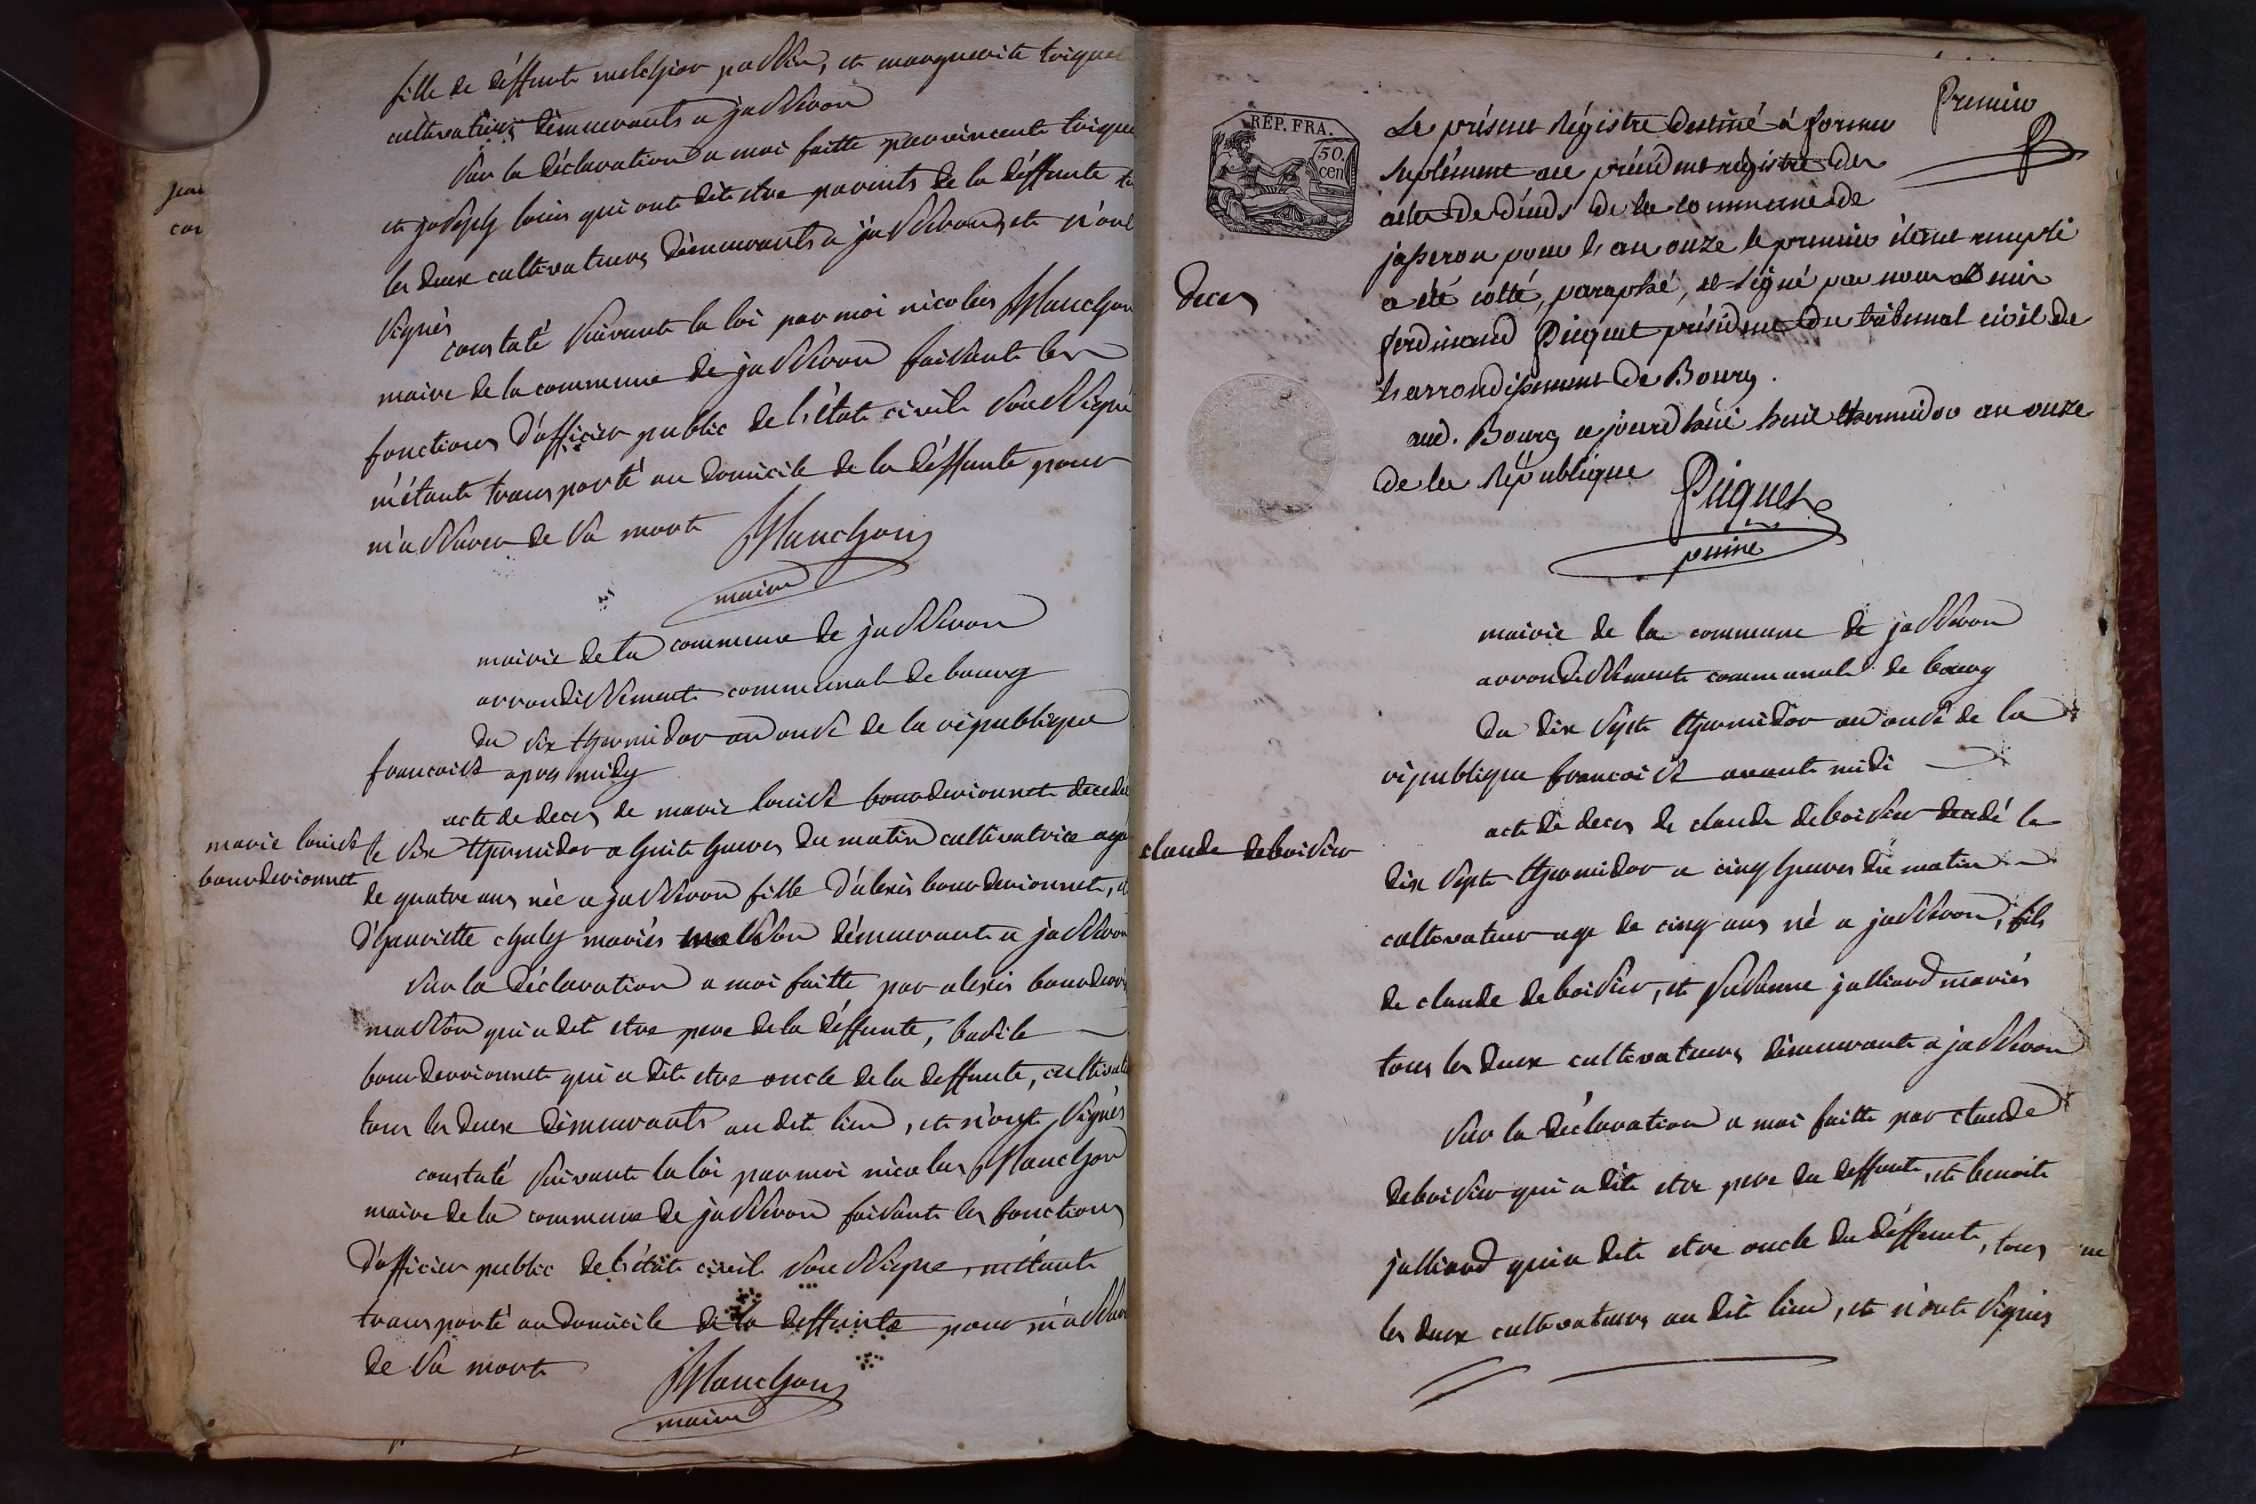 fille de déffunt melchior possin, et marguerite triquet
cultivateurs démeurants a jasseron
Sur la déclaration a moi faitte par vincent trique
et joseph louis qui ont dit etre parents de la déffunte
les deux cultivateurs démeurants a jasseron, et n'ont
signés
constaté suivant la loi par moi nicolas Manchon
maire de la commune de jasseron faisant les
fonctions d'officier public de l'état civil soussigné
m'étant transporté au domicile de la déffunte pour
m'assurer de sa mort
Manchon
maire
mairie de la commune de jasseron
arrondissement communal de bourg
du six thermidor an onse de la république
francoise apres midy
marie louise
bourderionnet
acte de deces de marie louise bourderionnet decedee
le six thermidor a huit heures du matin cultivatrice agee
de quatre ans née a jasseron fille d'alexis bourderionnet, et
d'henriette chaly mariés masson démeurant a jasseron
Sur la déclaration a moi faitte par alexis bourderi
masson qui a dit etre pere de la déffunte, basile
bourderionnet qui a dit etre oncle de la deffunte, cultivate
tous les deux démeurants au dit lieu, et n'ont signés
constaté suivant la loi par moi nicolas Manchon
maire de la commune de jasseron faisant les fonctions
d'officier public de l'état civil soussigne, m'étant
transporté au domicile de la deffunte pour m'assur
de sa mort
Manchon
maire
Premier
REP. FRA.
50.
cen
Le présent Régistre destiné à former
suplément au précédent régistre des
actes de décès de la commune de
jasseron pour l'an onze le premier étant rempli
a été cotté, paraphé, et signé par nous
ferdinand Piquet président du tribunal civil de
l'arrondissement de Bourg.
aud. Bourg ajourd'hui huit thermidor an onze
de la République
Piquet
deces
mairie de la commune de jasseron
arrondissement communal de bourg
du dix sept thermidor an onse de la
république francoise avant midi
claude deboisieu
acte de deces de claude deboisieu decedé le
dix sept thermidor a cinq heures du matin
cultivateur age de cinq ans né a jasseron, fils
de claude deboisieu, et susanne julliard mariés
tous les deux cultivateurs démeurant a jasseron
Sur la déclaration a moi faitte par claude
deboisieu qui a dit etre pere du deffunt, et benoit
julliard qui a dit etre oncle du déffunt, tous
les deux cultivateurs au dit lieu, et n'ont signés